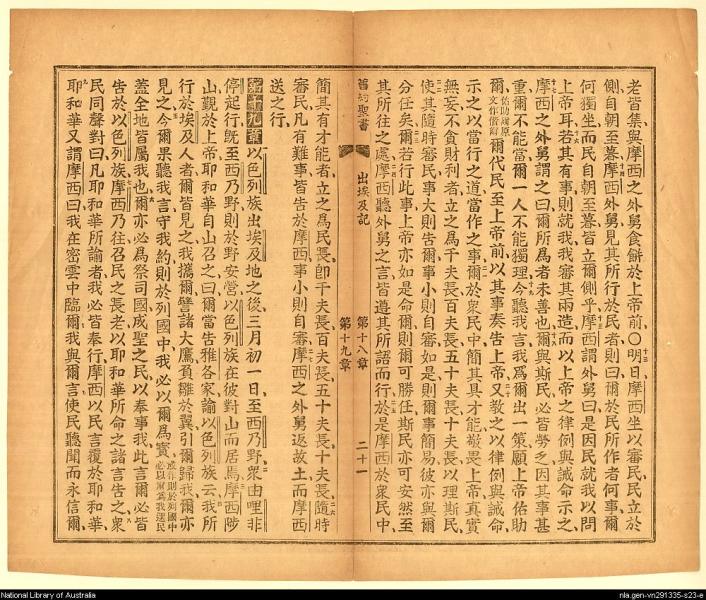 老皆集與摩西之外舅食餅於上帝前〇明日摩西坐以審民民立於
側自朝至暮摩西外舅見其所行於民者則曰爾於民所作者何事爾
何獨坐而民自朝至暮皆立爾側乎摩西謂外舅曰是因民就我以問
上帝耳若其有事則就我我審其兩造而以上帝之律例與誡命示之
摩西之外舅謂之曰爾所爲者未善也爾與斯民必皆勞乏因其事甚
重爾不能當爾一人不能獨理今聽我言我爲爾出一策願上帝佑助
爾爾代民至上帝前以其事奏告上帝又敎之以律例與誡命
示之以當行之道當作之事爾於衆民中簡其具才能敬畏上帝眞實
無妄不貪財利者立之爲千夫長百夫長五十夫長十夫長以理斯民
使其隨時審民事大則告爾事小則自審如是則爾事簡易彼亦與爾
分任矣爾若行此事上帝亦如是命爾則爾可勝任斯民亦可安然至
其所往之處摩西聽外舅之言皆遵其所語而行於是摩西於衆民中
舊約聖書
出埃及記
第十八章
第十九章
二十一
簡其有才能者立之爲民長卽千夫長百夫長五十夫長十夫長隨時
審民凡有難事皆告於摩西事小則自審摩西之外舅返故土而摩西
送之行
第十九章以色列族出埃及地之後三月初一日至西乃野衆由哩非
停起行旣至西乃野則於野安營以色列族在彼對山而居焉摩西陟
山覲於上帝耶和華自山召之曰爾當告雅各家諭以色列族云我所
行於埃及人者爾皆見之我攜爾譬諸大鷹負雛於翼引爾歸我爾亦
見之今爾果聽我言守我約則於列國中我必以爾爲寶
蓋全地皆屬我也爾亦必爲祭司國成聖之民以奉事我此言爾必皆
告於以色列族摩西乃往召民之長老以耶和華所命之諸言告之衆
民同聲對曰凡耶和華所諭者我必皆奉行摩西以民言覆於耶和華
耶和華又謂摩西曰我在密雲中臨爾我與爾言使民聽聞而永信爾
National Library of Australia
nla.gen-vn291335-s23-e